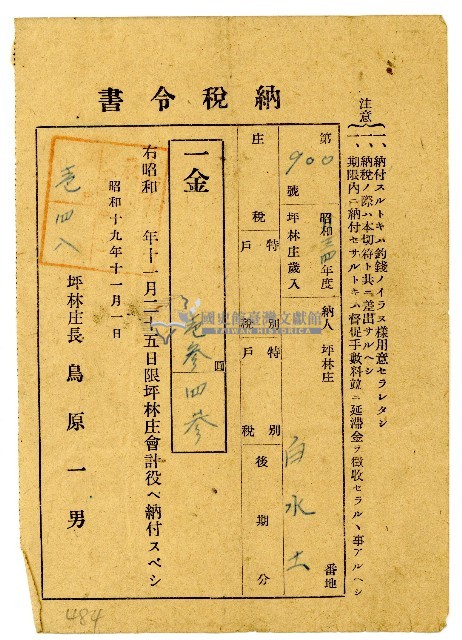 納稅令書
注意
一、納付スルトキハ釣錢ノイラヌ樣用意セラレタシ
一、納稅ノ際ハ本切符ト共ニ差出サルヘシ
一、期限內ニ納付セサルトキハ督促手數料竝ニ延滯金ヲ徵收セラルヽ事アルヘシ
第900號
昭和 年度
坪林庄歲入
納人 坪林庄 番地
白水土
庄稅
特別戶稅
特別戶稅
後期分
一金
壱參四參
圓
右昭和 年十一月二十五日限坪林庄會計役ヘ納付スベシ
昭和十九年十一月一日
坪林庄長 鳥原一男
國史館臺灣文獻館
TAIWAN HISTORICA
484